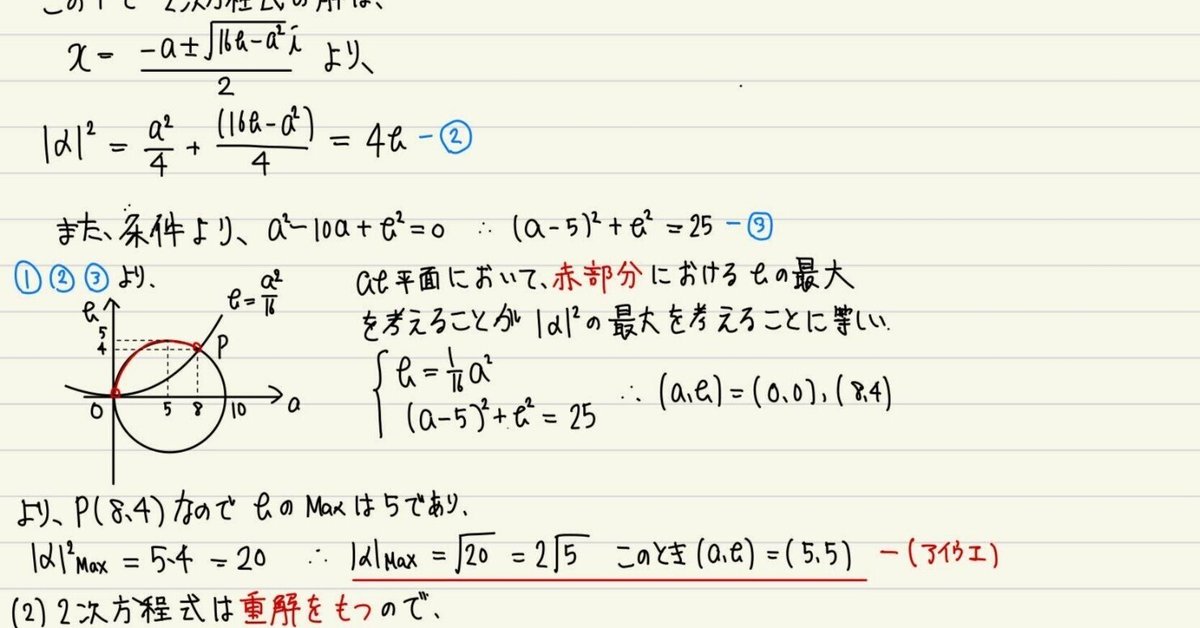 この下で 2次方程式の解は、
x = (-a±√(16b-a²) i)/2 より、
|α|² = a²/4 + (16b-a²)/4 = 4b -②
また、条件より、a²-10a+b²=0 ∴ (a-5)²+b²=25 -③
①②③より、
b
b=a²/16
5
4
P
0 5 8 10 a
ab平面において、赤部分におけるbの最大
を考えることが |α|²の最大を考えることに等しい.
{ b=1/16 a²
(a-5)²+b²=25
∴ (a,b)=(0,0),(8,4)
より、P(8,4)なので bのMaxは5であり、
|α|²Max = 5・4 = 20 ∴ |α|Max = √20 = 2√5 このとき(a,b)=(5,5) -(アイウエ)
(2) 2次方程式は重解をもつので、